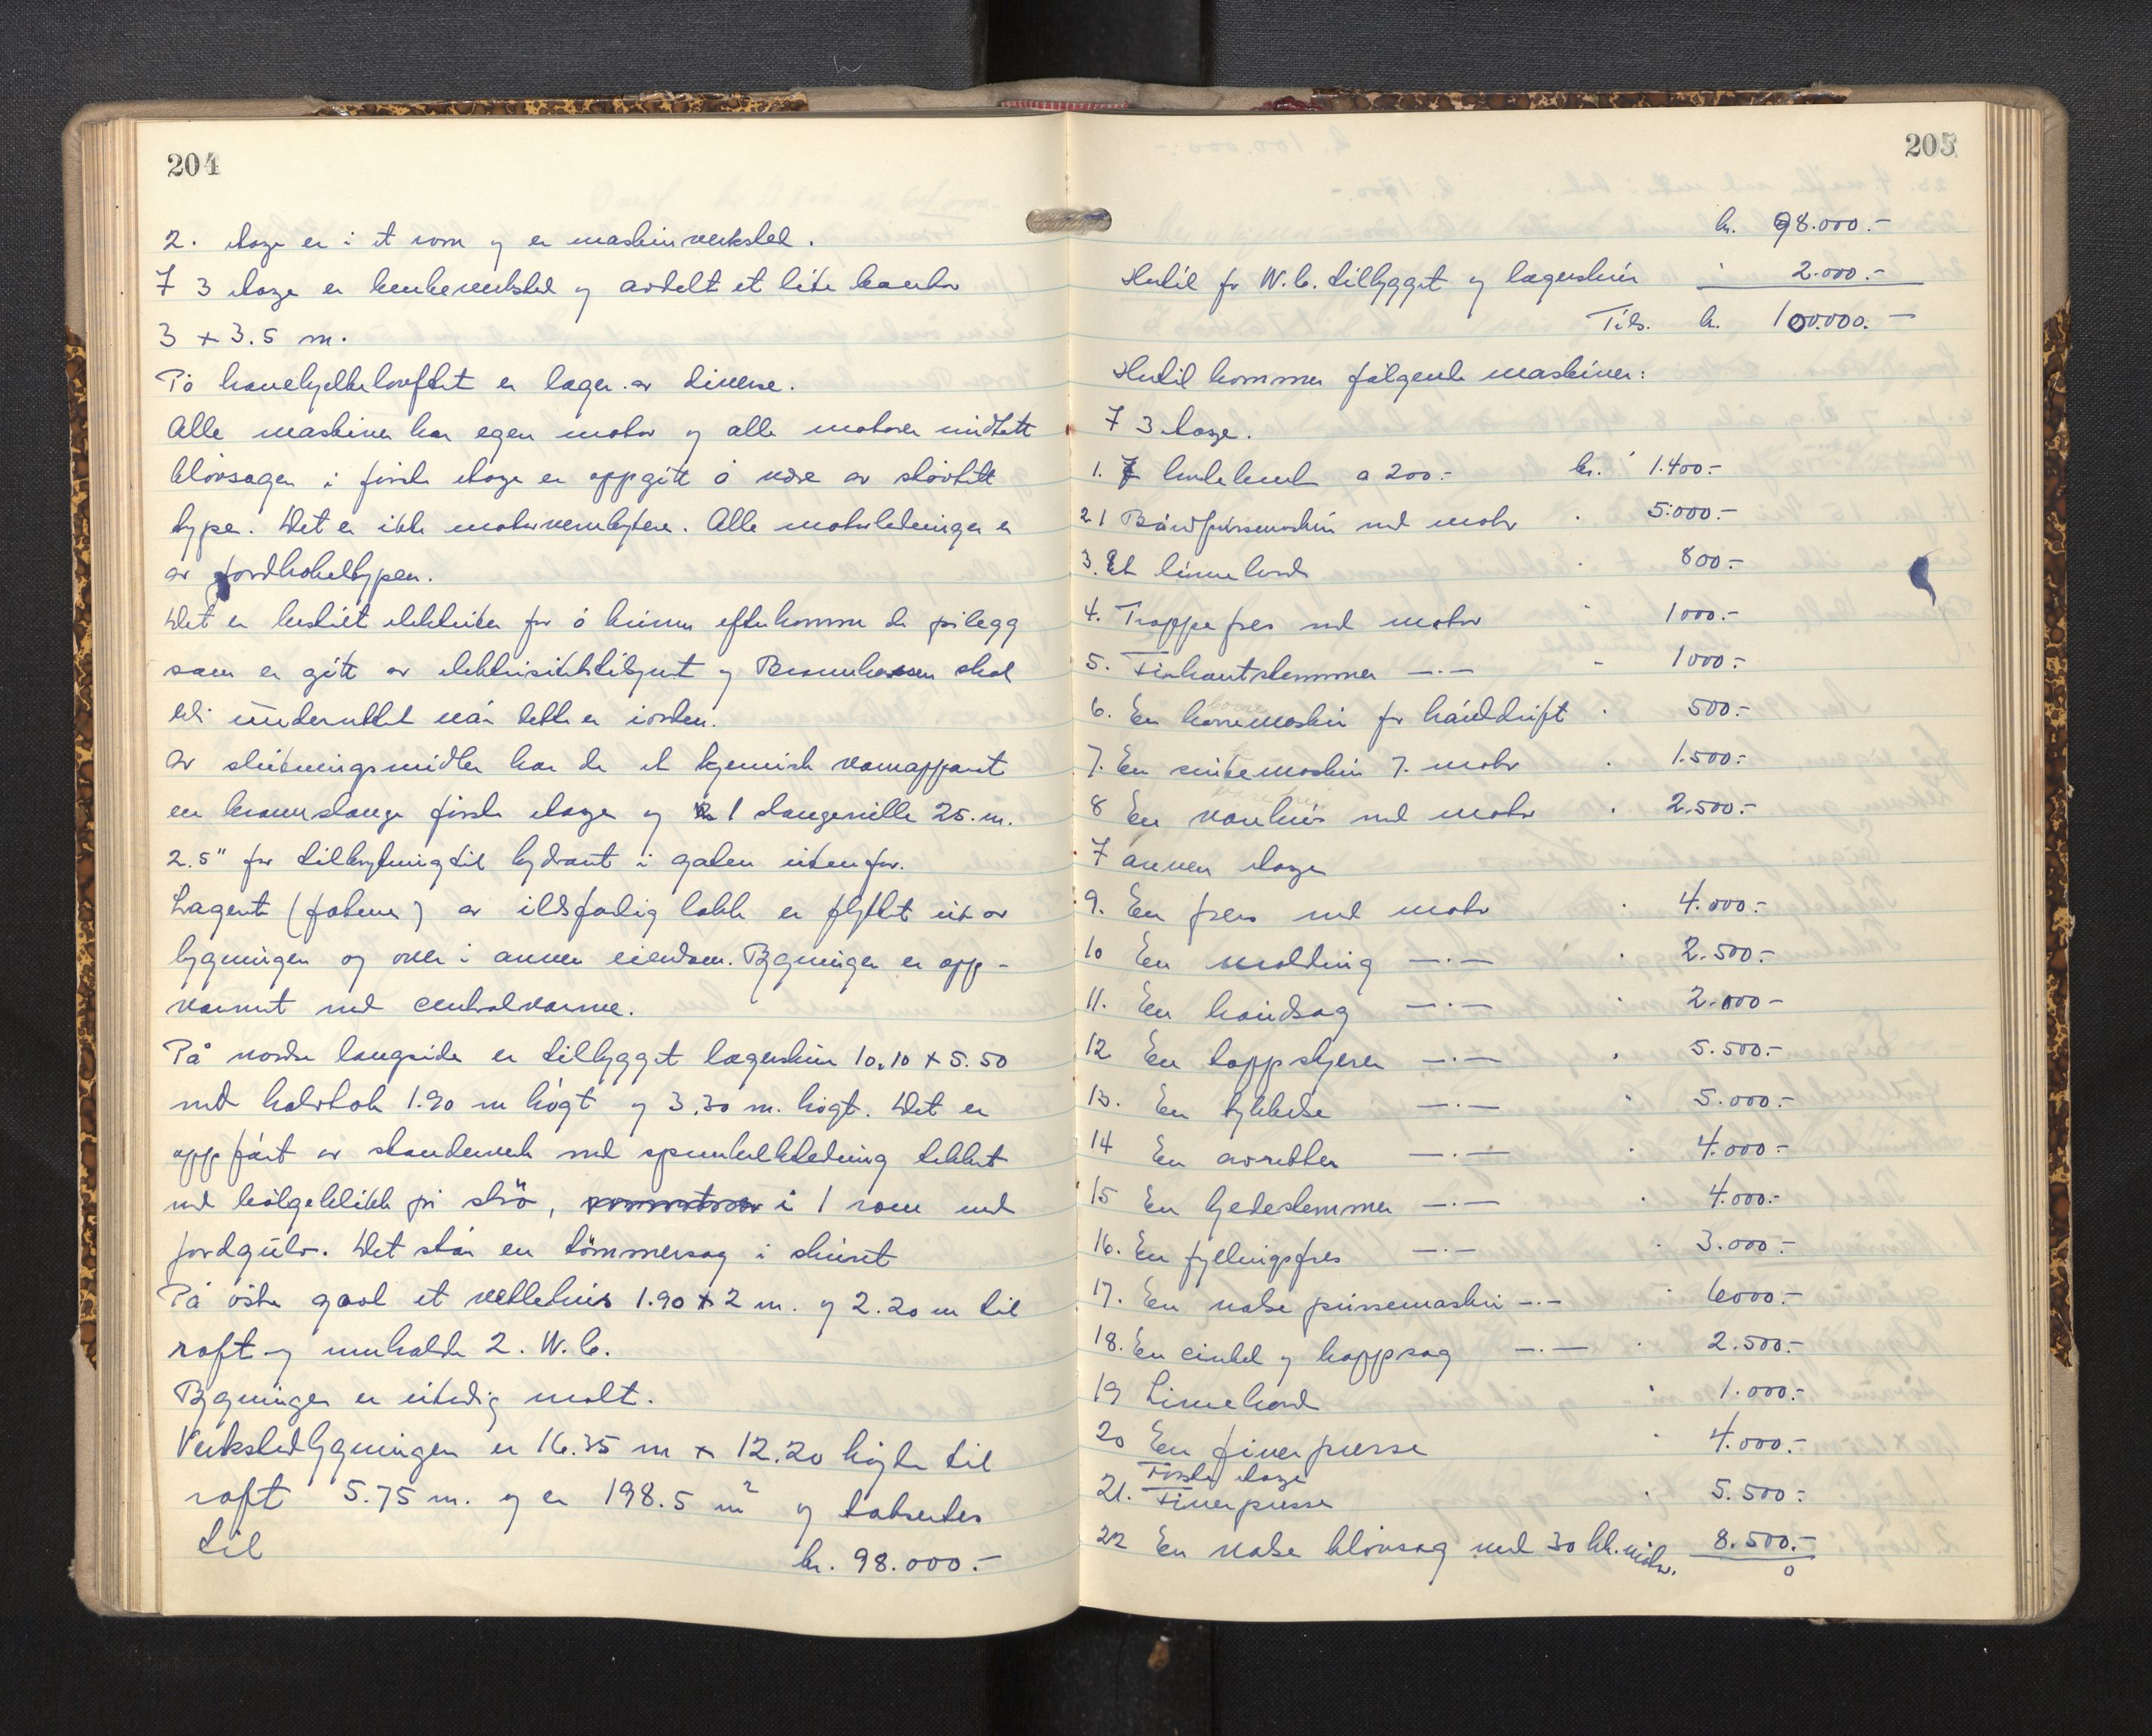 204
2. etage er i et rom og er maskinverksted.
I 3 etage er benkeverksted og avdelt et lite kontor
3 x 3.5 m.
På hanebjelkeloftet er lager av diverse.
Alle maskiner har egen motor og alle motorer undtatt
kløvsagen i første etage er oppgitt å være av støvtett
type. Det er ikke motorvernbrytere. Alle motorledninger er
av jordkabeltypen.
Det er bestilt elektriker for å kunne efterkomme de pålegg
som er gitt av elektrisitetstilsynet og Brannkassen skal
bli underrettet når dette er iorden.
Av slukningsmidler har de et kjemisk vannapparat
en brannslange første etage og 1 slangerulle 25. m.
2.5" for tilknytning til hydrant i gaten utenfor.
Lageret (fatene) av ildsfarlig lakk er flyttet ut av
bygningen og over i annen eiendom. Bygningen er opp-
varmet med centralvarme.
På nordre langside er tilbygget lagerskur 10.10 x 5.50
med halvtak 1.90 m høgt og 3.30 m. høgt. Det er
oppført av standerverk med spunkledning tekket
med bølgeblikk på strø, i 1 rom med
jordgulv. Det står en tømmersag i skuret
På østre gavl et vettehus 1.90 x 2 m. og 2.20 m til
raft og inneholde 2. W.C.
Bygningen er utvendig malt.
Verkstedbygningen er 16.35 m x 12.20 høgde til
raft 5.75 m. og er 198.5 m² og takseres
til kr. 98.000.-
205
kr. 98.000.-
Hertil for W.C. tilbygget og lagerskur " 2.000.-
Tils. kr. 100.000.-
Hertil kommer følgende maskiner:
I 3 etage.
1. 7 høvlebenk a 200.- kr. 1.400.-
2 1 Båndpussemaskin med motor " 5.000.-
3. Et limebord " 800.-
4. Trappefres med motor " 1000.-
5. Finkantstemmer —.— " 1000.-
6. En borremaskin for hånddrift " 500.-
7. En sinkemaskin 7. motor " 1.500.-
8 En med motor " 2.500.-
I annen etage
9. En fres med motor " 4.000.-
10 En molding —.— " 2.500.-
11. En bandsag —.— " 2.000-
12 En tappskjerer —.— " 5.500.-
13. En tykkelse —.— " 5.000.-
14 En avretter —.— " 4.000.-
15 En kjedestemmer —.— " 4.000.-
16. En fyllingsfres —.— " 3.000.-
17. En valse pussemaskin —.— " 6000.-
18. En cirkel og kappsag —.— " 2.500.-
19 Limebord " 1.000.-
20 En finerpresse " 4.000.-
Første etage
21. Finerpresse " 5.500.-
22 En valse kløvsag med 30 hk. motor. 8.500.-
0